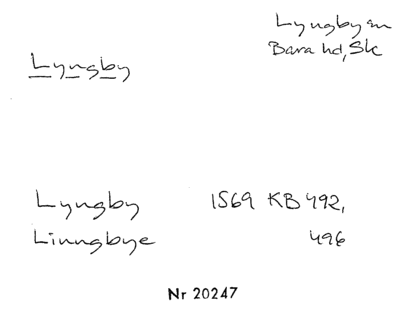 Lyngby
Lyngby sn
Bara hd, Sk
Lyngby 1569 KB 492,
Linngbye 496
Nr 20247